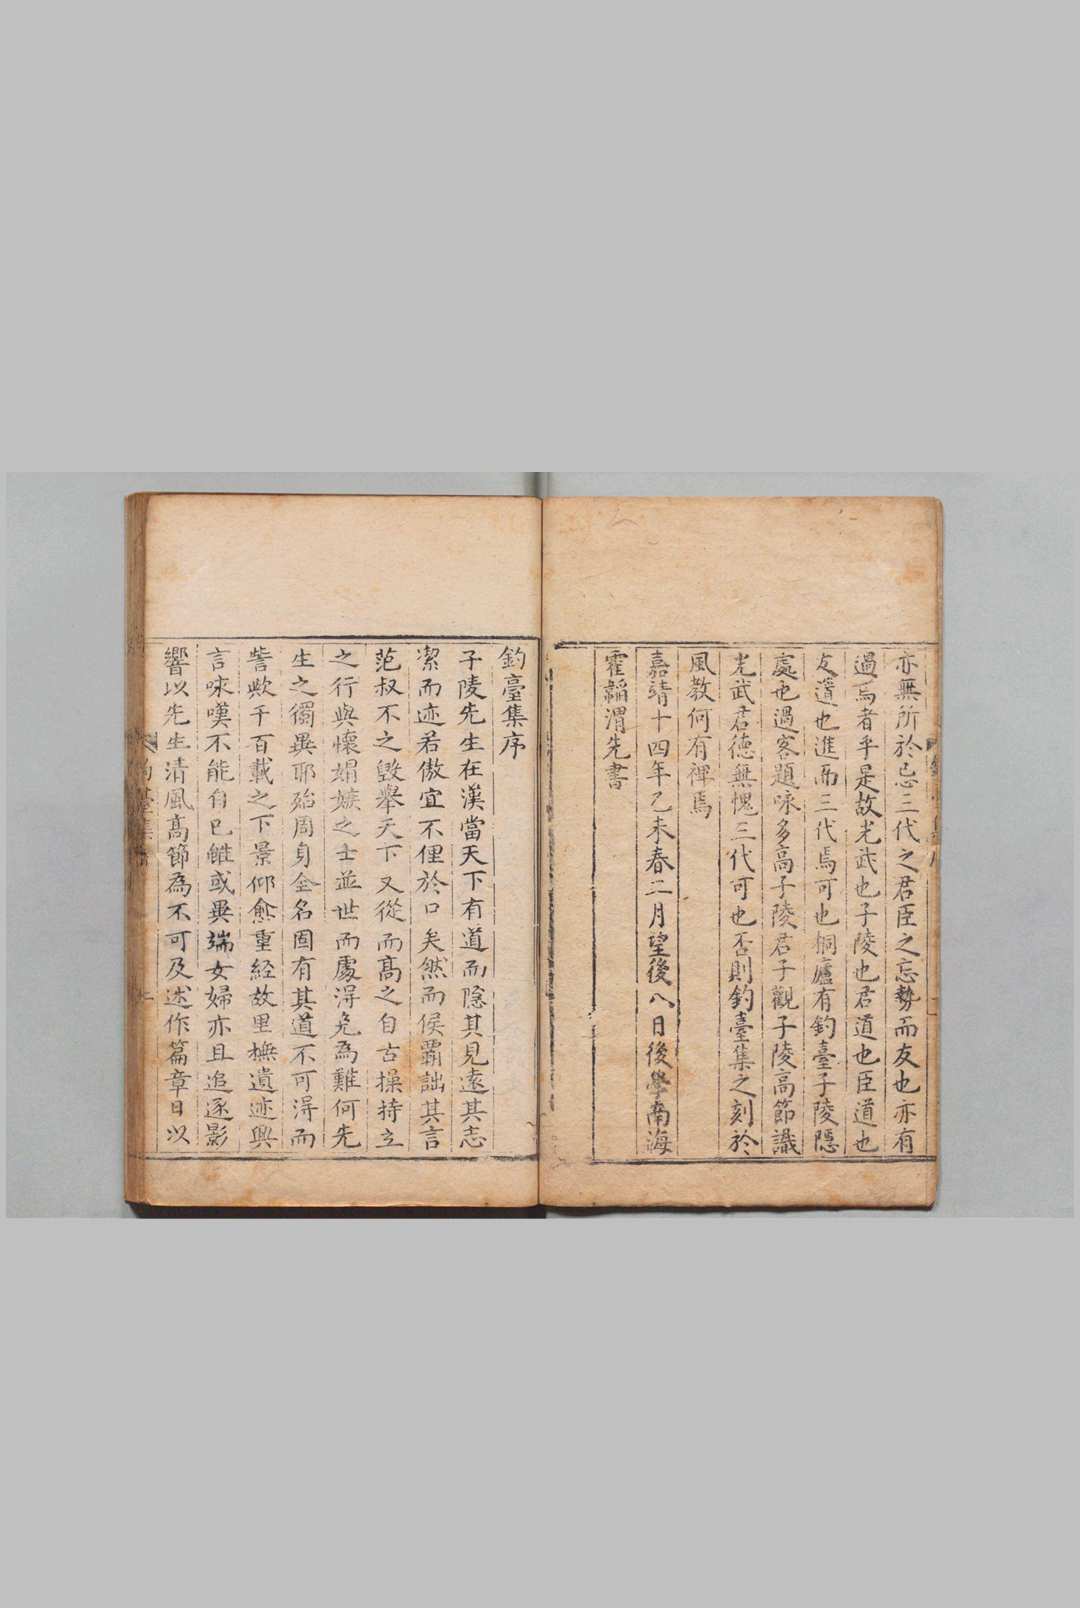 亦無所於忌三代之君臣之忘勢而友也亦有
過焉者乎是故光武也子陵也君道也臣道也
友道也進而三代焉可也桐廬有釣臺子陵隱
處也過客題咏多高子陵君子觀子陵高節識
光武君德無愧三代可也否則釣臺集之刻於
風教何有裨焉
嘉靖十四年乙未春二月望後八日後學南海
霍韜渭先書
釣臺集序
子陵先生在漢當天下有道而隱其見遠其志
潔而迹若傲宜不俚於口矣然而侯霸詘其言
范叔不之毀舉天下又從而高之自古操持立
之行與懷娼嫉之士並世而處淂免為難何先
生之獨異耶殆周身全名固有其道不可淂而
訾歟千百載之下景仰愈重経故里撫遺迹興
言咏嘆不能自已雖或異端女婦亦且追逐影
響以先生清風髙節為不可及述作篇章日以
釣臺集